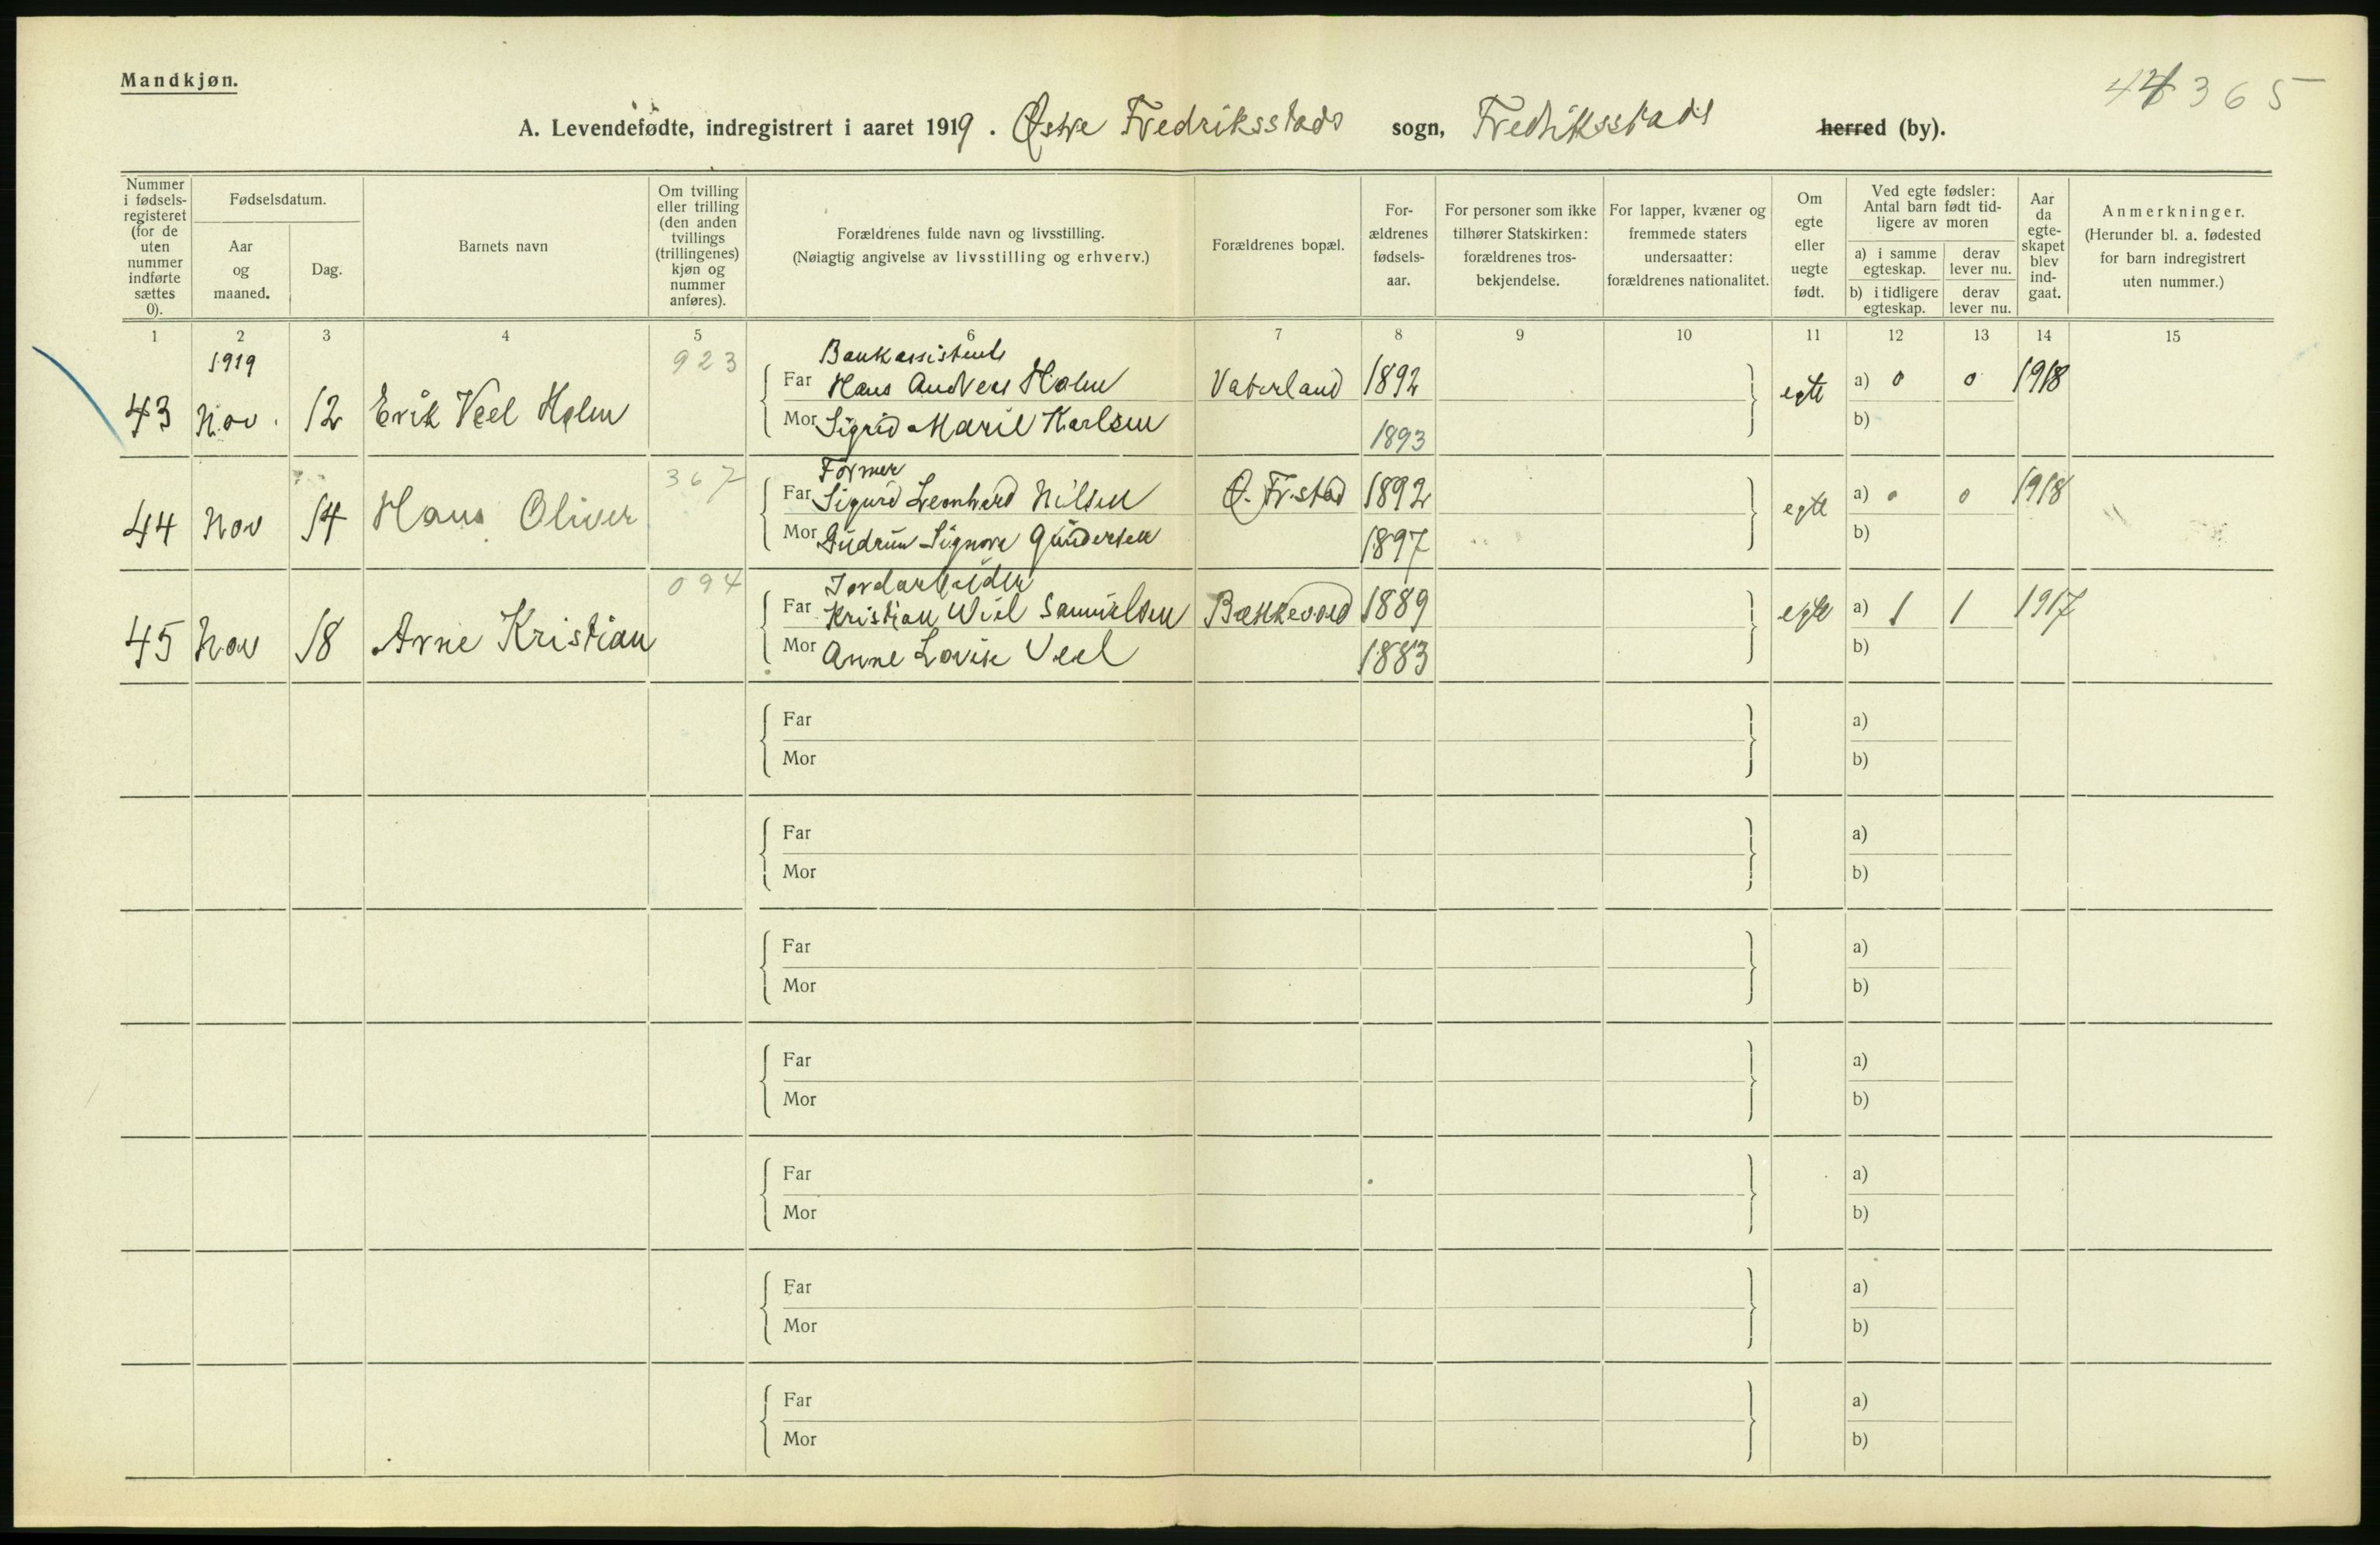 Mandkjøn.
44 365
A. Levendefødte, indregistrert i aaret 1919. Østre Fredriksstads sogn, Fredriksstads herred (by).
Nummer i fødsels-registeret (for de uten nummer indførte sættes 0).
Fødselsdatum.
Aar og maaned.
Dag.
Barnets navn
Om tvilling eller trilling (den anden tvillings (trillingenes) kjøn og nummer anføres).
Forældrenes fulde navn og livsstilling.
(Nøiagtig angivelse av livsstilling og erhverv.)
Forældrenes bopæl.
For-ældrenes fødsels-aar.
For personer som ikke tilhører Statskirken: forældrenes tros-bekjendelse.
For lapper, kvæner og fremmede staters undersaatter: forældrenes nationalitet.
Om egte eller uegte født.
Ved egte fødsler: Antal barn født tid-ligere av moren
a) i samme egteskap.
derav lever nu.
b) i tidligere egteskap.
derav lever nu.
Aar da egte-skapet blev ind-gaat.
Anmerkninger.
(Herunder bl. a. fødested for barn indregistrert uten nummer.)
1 2 3 4 5 6 7 8 9 10 11 12 13 14 15
1919 923 Bankassistent
Far Hans Andreas Holm Vaterland 1892 egte a) 0 0 1918
43 Nov. 12 Erik Veel Holm
Mor Sigrid Marie Karlsen 1893 b)
367 Former
Far Sigurd Leonhard Nilsen Ø. Fr.stad 1892 egte a) 0 0 1918
44 Nov 14 Hans Oliver
Mor Gudrun Signora Gundersen 1897 b)
094 Jordarbeider
Far Kristian Wiel Samuelsen Bækkevold 1889 egte a) 1 1 1917
45 Nov 18 Arne Kristian
Mor Anne Lovise Veel 1883 b)
Far a)
Mor b)
Far a)
Mor b)
Far a)
Mor b)
Far a)
Mor b)
Far a)
Mor b)
Far a)
Mor b)
Far a)
Mor b)